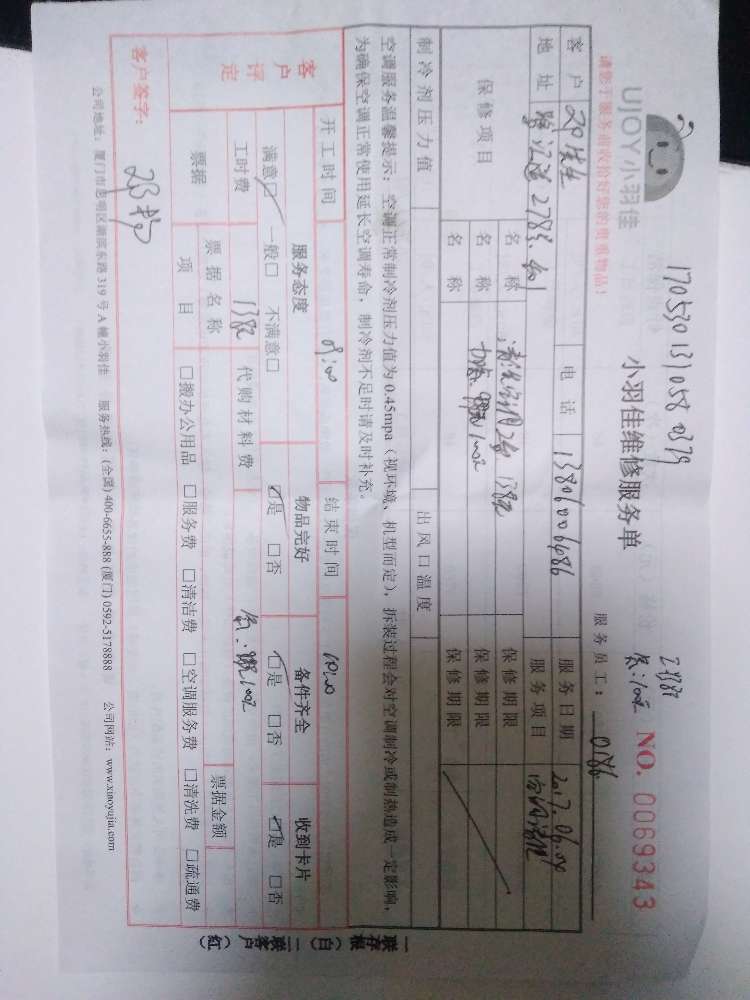 170530131058 0379
UJOY小羽佳
小羽佳维修服务单
NO. 0069343
请您于服务前收拾好您的贵重物品!
服务员工: 0186
客户 电话 13806006486 服务日期 2017.06.04
地址 278号 服务项目 空调清洗
保修项目 名称 保修期限
名称 保修期限
名称 保修期限
制冷剂压力值 出风口温度
空调服务温馨提示:空调正常制冷剂压力值为0.45mpa(视环境、机型而定),拆装过程会对空调制冷或制热造成一定影响,
为确保空调正常使用延长空调寿命,制冷剂不足时请及时补充。
开工时间 9:00 结束时间 10:00
客户评定 服务态度 物品完好 备件齐全 收到卡片
满意☑ 一般□ 不满意□ ☑是 □否 ☑是 □否 ☑是 □否
工时费 138 代购材料费
票据 票据名称 票据金额
项目 □搬办公用品 □服务费 □清洁费 □空调服务费 □清洗费 □疏通费
客户签字:
公司地址:厦门市思明区湖滨东路319号A幢小羽佳 服务热线:(全国)400-6655-888 (厦门)0592-5178888 公司网站:www.xiaoyujia.com
一联存根(白) 二联客户(红)